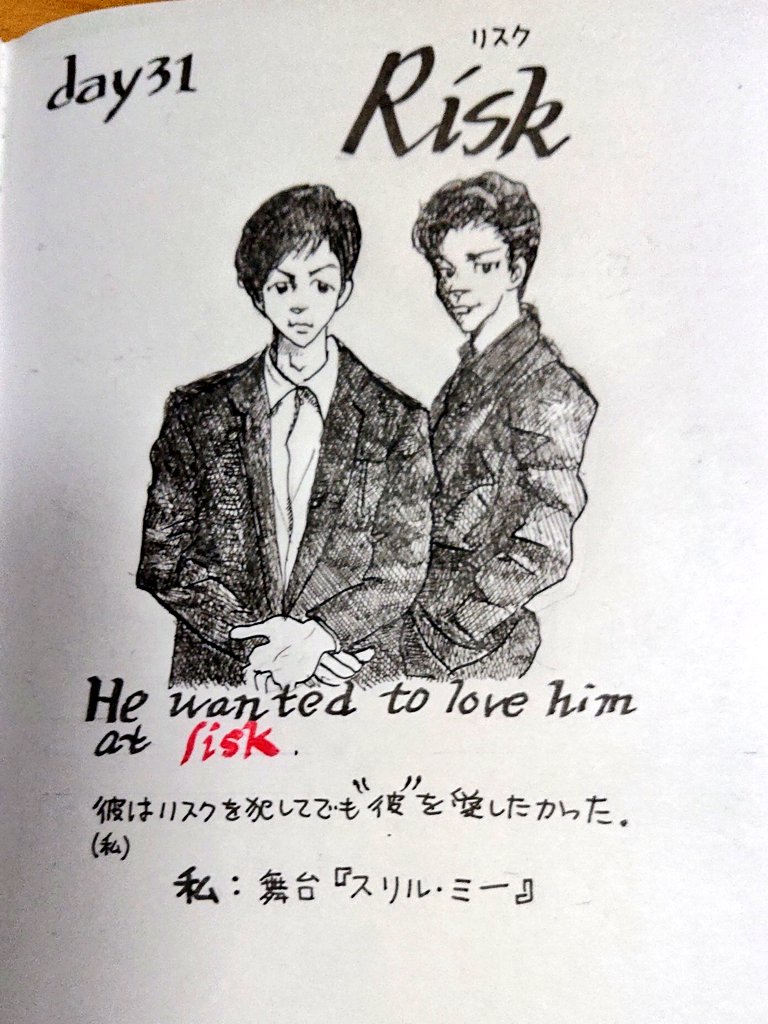 day31
リスク
Risk
He wanted to love him
at risk.
彼はリスクを犯してでも"彼"を愛したかった。
(私)
私：舞台『スリル・ミー』